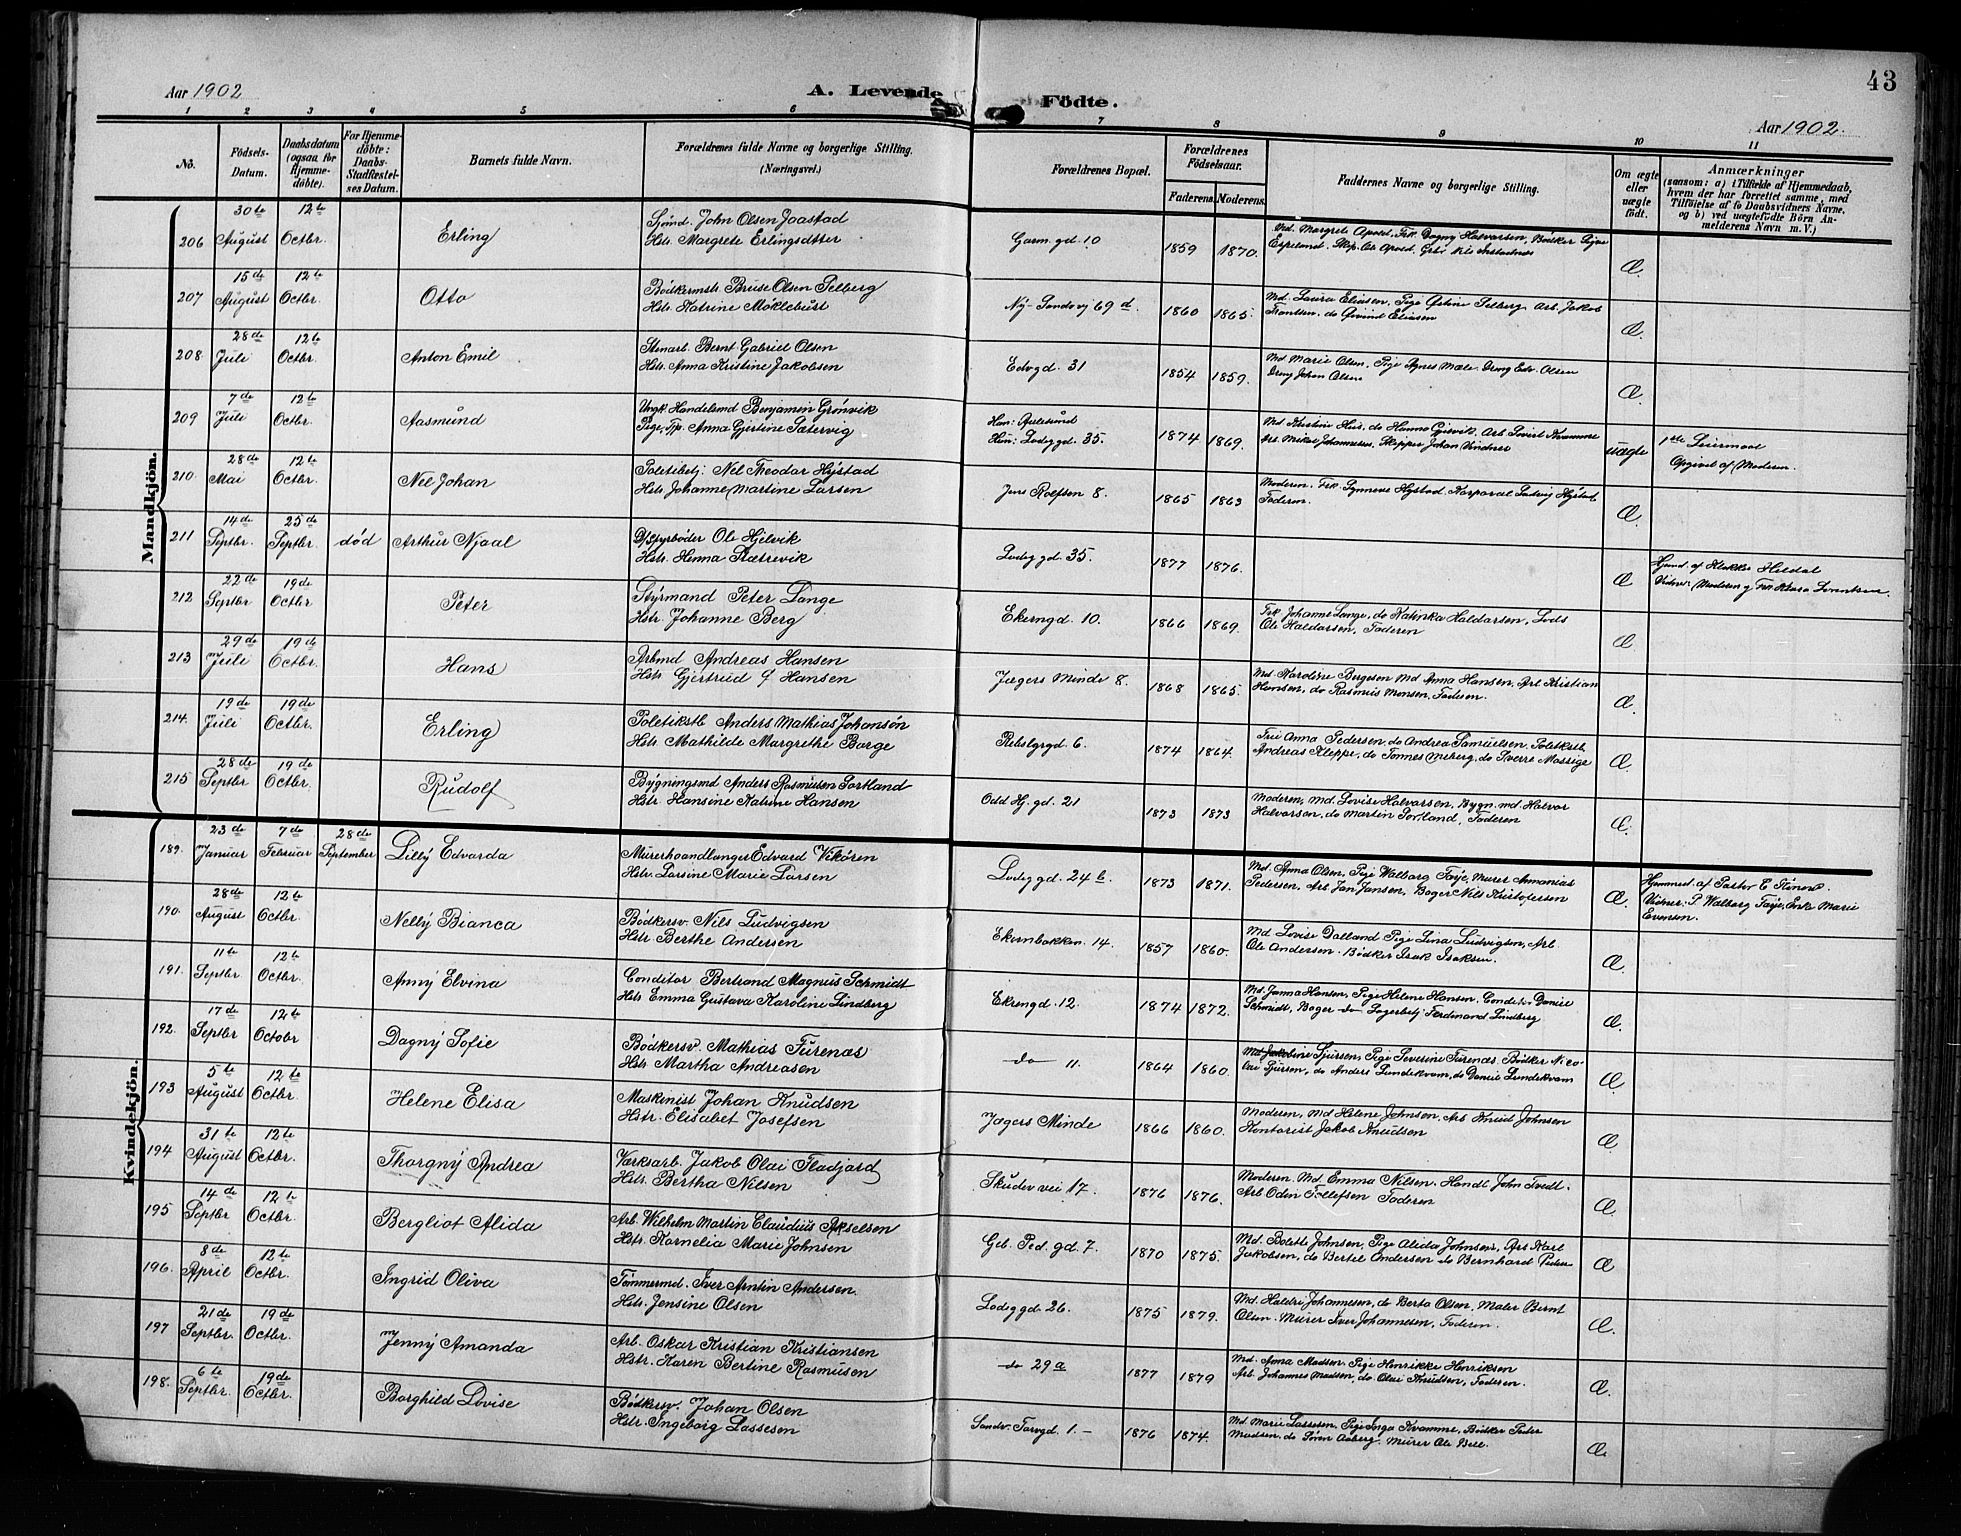 43
Aar 1902
A. Levende
Födte.
Aar 1902.
1 2 3 4 5 6 7 8 9 10 11
No.
Födsels-
Datum.
Daabsdatum
(ogsaa for
Hjemme-
döbte).
For Hjemme-
döbte:
Daabs-
Stadfæstel-
ses Datum.
Barnets fulde Navn.
Forældrenes fulde Navne og borgerlige Stilling.
(Næringsvei.)
Forældrenes Bopæl.
Forældrenes
Födselsaar.
Faderens. Moderens.
Faddernes Navne og borgerlige Stilling.
Om ægte
eller
uægte
födt.
Anmærkninger
(saasom: a) i Tilfælde af Hjemmedaab,
hvem der har forrettet samme, med
Tilföielse af to Daabsvidners Navne,
og b) ved uægtefödte Börn An-
melderens Navn m. V.)
Mandkjön.
206 30te August 12te Octbr. Erling
Sjömd. John Olsen Jaastad
Hstr. Margrete Erlingsdtter
Garm. gd. 10 1859 1870.
Æ.
207 15de August 12te Octbr. Otto
Bödkermstr. Bruse Olsen Selberg
Hstr. Katrine Möklebust
Ny-Sandvvj 69 d. 1860 1865.
Md. Laura Eliasen, Pige Östine Selberg, Arb. Jakob
Frantsen. do Öivind Eliasen
Æ.
208. 28de Juli 12te Octbr. Anton Emil
Stenarb. Bernt Gabriel Olsen
Hstr. Anna Kristine Jakobsen
Edvgd. 31 1854 1859.
Md Marie Olsen, Pige Agnes Mæle. Dreng Edv. Olsen
Dreng Johan Olsen
Æ.
209 7de Juli 12te Octbr. Aasmund
Ungk. Handelsmd Benjamin Grönvik
Pige, Tjp. Anna Gjertine Sætervig
Han: Aalesund
Hun: Lodeg gd. 35. 1874 1869.
Arb. Mikal Johannesen, Skipper Johan Vindnes
uægte
1ste Leiermaal
Opgivet af Moderen.
210. 28de Mai 12te Octbr. Nel Johan
Politibetj. Nel Theodor Hystad
Hstr. Johanne Martine Larsen
Jens Rolfsen 8. 1865 1863
Moderen. Frk. Synneve Hystad. Korporal Ludvig Hystad
Faderen.
Æ.
211 14de Septbr. 25de Septbr. död Arthur Njaal
D/S fyrböder Ole Hjelvik
Hstr. Hanna Sætrevik
Lodeg gd. 35. 1877 1876.
Æ
Hjmd. af Klokker Hildal
Vidner: Moderen og Frk Klara Lorentsen.
212 22de Septbr 19de Octbr Peter
Styrmand Peter Lange
Hstr. Johanne Berg
Ekerngd. 10. 1866 1869.
Frk Johanne Lange, do Katinka Haldorsen, Lods
Ole Haldorsen, Faderen
Æ.
213 29de Juli 19de Octbr. Hans
Arbmd Andreas Hansen
Hstr Gjertrud f Hansen
Jægers Minde 8. 1868 1865.
Md. Karoline Bergesen Md Anna Hansen, Arb Kristian
Hansen, do Rasmus Monsen, Faderen.
Æ.
214. 19de Juli 19de Octbr. Erling
Politikstb Anders Mathias Johansön
Hstr. Mathilde Margrethe Borge
Rebslgrgd. 6. 1874 1864.
Fru Anna Pedersen, do Andrea Samuelsen. Politkstb
Andreas Kleppe, do Tönnes Meberg, do Sverre Massige
Æ.
215 28de Septbr 19de Octbr. Rudolf
Bygningsmd Anders Rasmusen Sortland
Hstr. Hansine Katrine Hansen
Odd Hj. gd. 21 1873 1873
Moderen, Md. Lovise Halvorsen, Bygn.md. Halvor
Halvorsen, do Martin Sortland, Faderen
Æ.
Kvindekjön.
189. 23de Januar 7de Februar 28de September Lilly Edvarda
Murerhaandlanger Edvard Vikören
Hstr. Larsine Marie Larsen
Lodeg gd. 24 b. 1873 1871.
Md. Anna Olsen, Pige Walborg Faye, Murer Ammanias
Pedersen, Arb Jan Jensen, Bager Nils Kristofersen
Æ.
Hjemmed. af Pastor E Stenen.
Vidner: P. Walborg Faye, Enke Marie
Evensen.
190. 28de August 12te Octbr. Nelly Bianca
Bödkersv. Nils Ludvigsen
Hstr. Berthe Andersen
Ekernbakken 14. 1857 1860.
Md Lovise Dalland Pige Lina Ludvigsen, Arb
Ole Andersen. Bödker Isak Isaksen.
Æ.
191. 11te Septbr 12te Octbr. Anny Elvina
Conditor Bertrand Magnus Schmidt
Hstr. Emma Gustava Karoline Lindberg
Ekerngd. 12. 1874 1872.
Md. Janna Hansen, Pige Helene Hansen. Conditor Daniel
Schmidt, Bager do Lagerbetj Ferdinand Lindberg
Æ.
192. 17de Septbr 12te Octobr Dagny Sofie
Bödkersv. Mathias Furenæs
Hstr. Martha Andreasen
do 11. 1864 1860.
Md Jakobine Sjursen, Pige Severine Furenæs. Bödker Nico-
lai Sjursen, do Anders Lundekvam, do Daniel Lundekvam
Æ.
193 5te August 12te Octbr. Helene Elisa
Maskinist Johan Knudsen
Hstr. Elisabet Josefsen
Jægers Minde 1866 1860.
Moderen, Md Helene Johnsen, Arb Knud Johnsen
Kontorist Jakob Knudsen
Æ.
194 31te August 12te Octbr. Thorgny Andrea
Værksarb. Jakob Olai Fladjord
Hstr. Bertha Nilsen
Skudev vei 17. 1876 1876.
Moderen. Md. Emma Nilsen. Handl. John Tvedt.
Arb Oden Tollefsen Faderen
Æ.
195 14de Septbr 12te Octbr. Bergliot Alida
Arb. Wilhelm Martin Claudius Akselsen
Hstr. Kornelia Marie Johnsen
Geb. Ped. gd. 7. 1870 1875.
Md. Bolette Johnsen, Pige Alida Johnsen, Arb Karl
Jakobsen, do Bertel Andersen do Bernhard Peders
Æ
196. 8de April 12te Octbr. Ingrid Oliva
Tömmermd. Iver Arntin Andersen.
Hstr. Jensine Olsen
Lodeg gd. 26. 1875 1879.
Md. Haldri Johannesen, do Berta Olsen, Maler Bernt
Olsen. Murer Iver Johannesen, Faderen.
Æ.
197 21de Septbr. 19de Octbr. Jenny Amanda
Arb. Oskar Kristian Kristiansen
Hstr. Karen Bertine Rasmusen
do 29 a 1877 1879
Md. Anna Madsen, Pige Henrikke Henriksen
Arb. Johannes Madsen, do Olai Knudsen, Faderen.
Æ.
198. 6te Septbr 19de Octbr. Borghild Lovise
Bödkersv. Johan Olsen
Hstr. Ingeborg Lassesen
Sandv. Torvgd. 1. 1876 1874.
Md. Marie Lassesen, Pige Inga Kvamme, Bödker Peder
Madsen, do Sören Aaberg. Murer Ole Bele.
Æ.